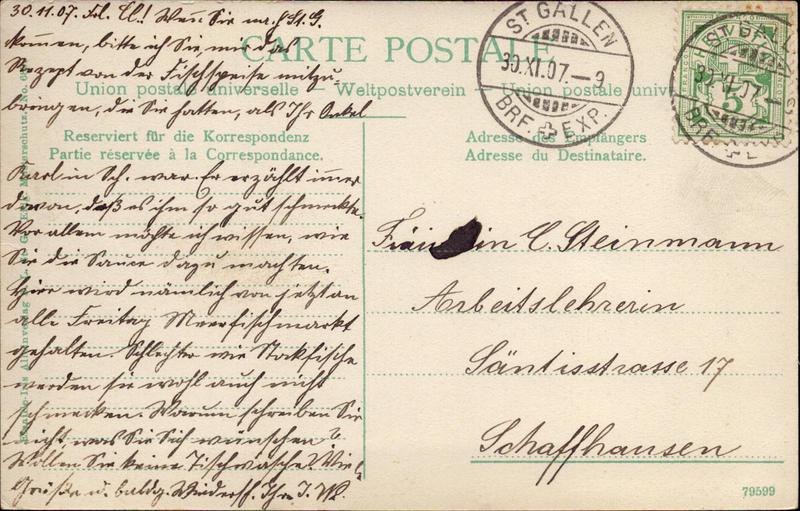 30.11.07. Frl. Cl.! Wenn Sie n. St. G.
kommen, bitte ich Sie, mir das
Rezept von der Fischspeise mitzu-
bringen, die Sie hatten, als Ihr Onkel
Karl in Sch. war. Er erzählt immer
davon, daß es ihm so gut schmeckte.
Vor allem möchte ich wissen, wie
Sie die Sauce dazu machten.
Hier wird nämlich von jetzt an
alle Freitag Meerfischmarkt
gehalten. Schlechter wie Stockfische
werden sie wohl auch nicht
schmecken. Warum schreiben Sie
nicht was Sie Sich wünschen?
Wollen Sie keine Tischwäsche? Viele
Grüße u. baldg. Wiederseh. Ihre J. W.
CARTE POSTALE
Union postale universelle. – Weltpostverein – Unione postale univ
Reserviert für die Korrespondenz
Partie réservée à la Correspondance.
Adresse des Empfängers
Adresse du Destinataire.
ST GALLEN
30.XI.07.–9
BRF. EXP.
ST GALLEN
30.XI.07.–
BRF. E
5
Fräulein C. Steinmann
Arbeitslehrerin
Säntisstrasse 17
Schaffhausen
79599